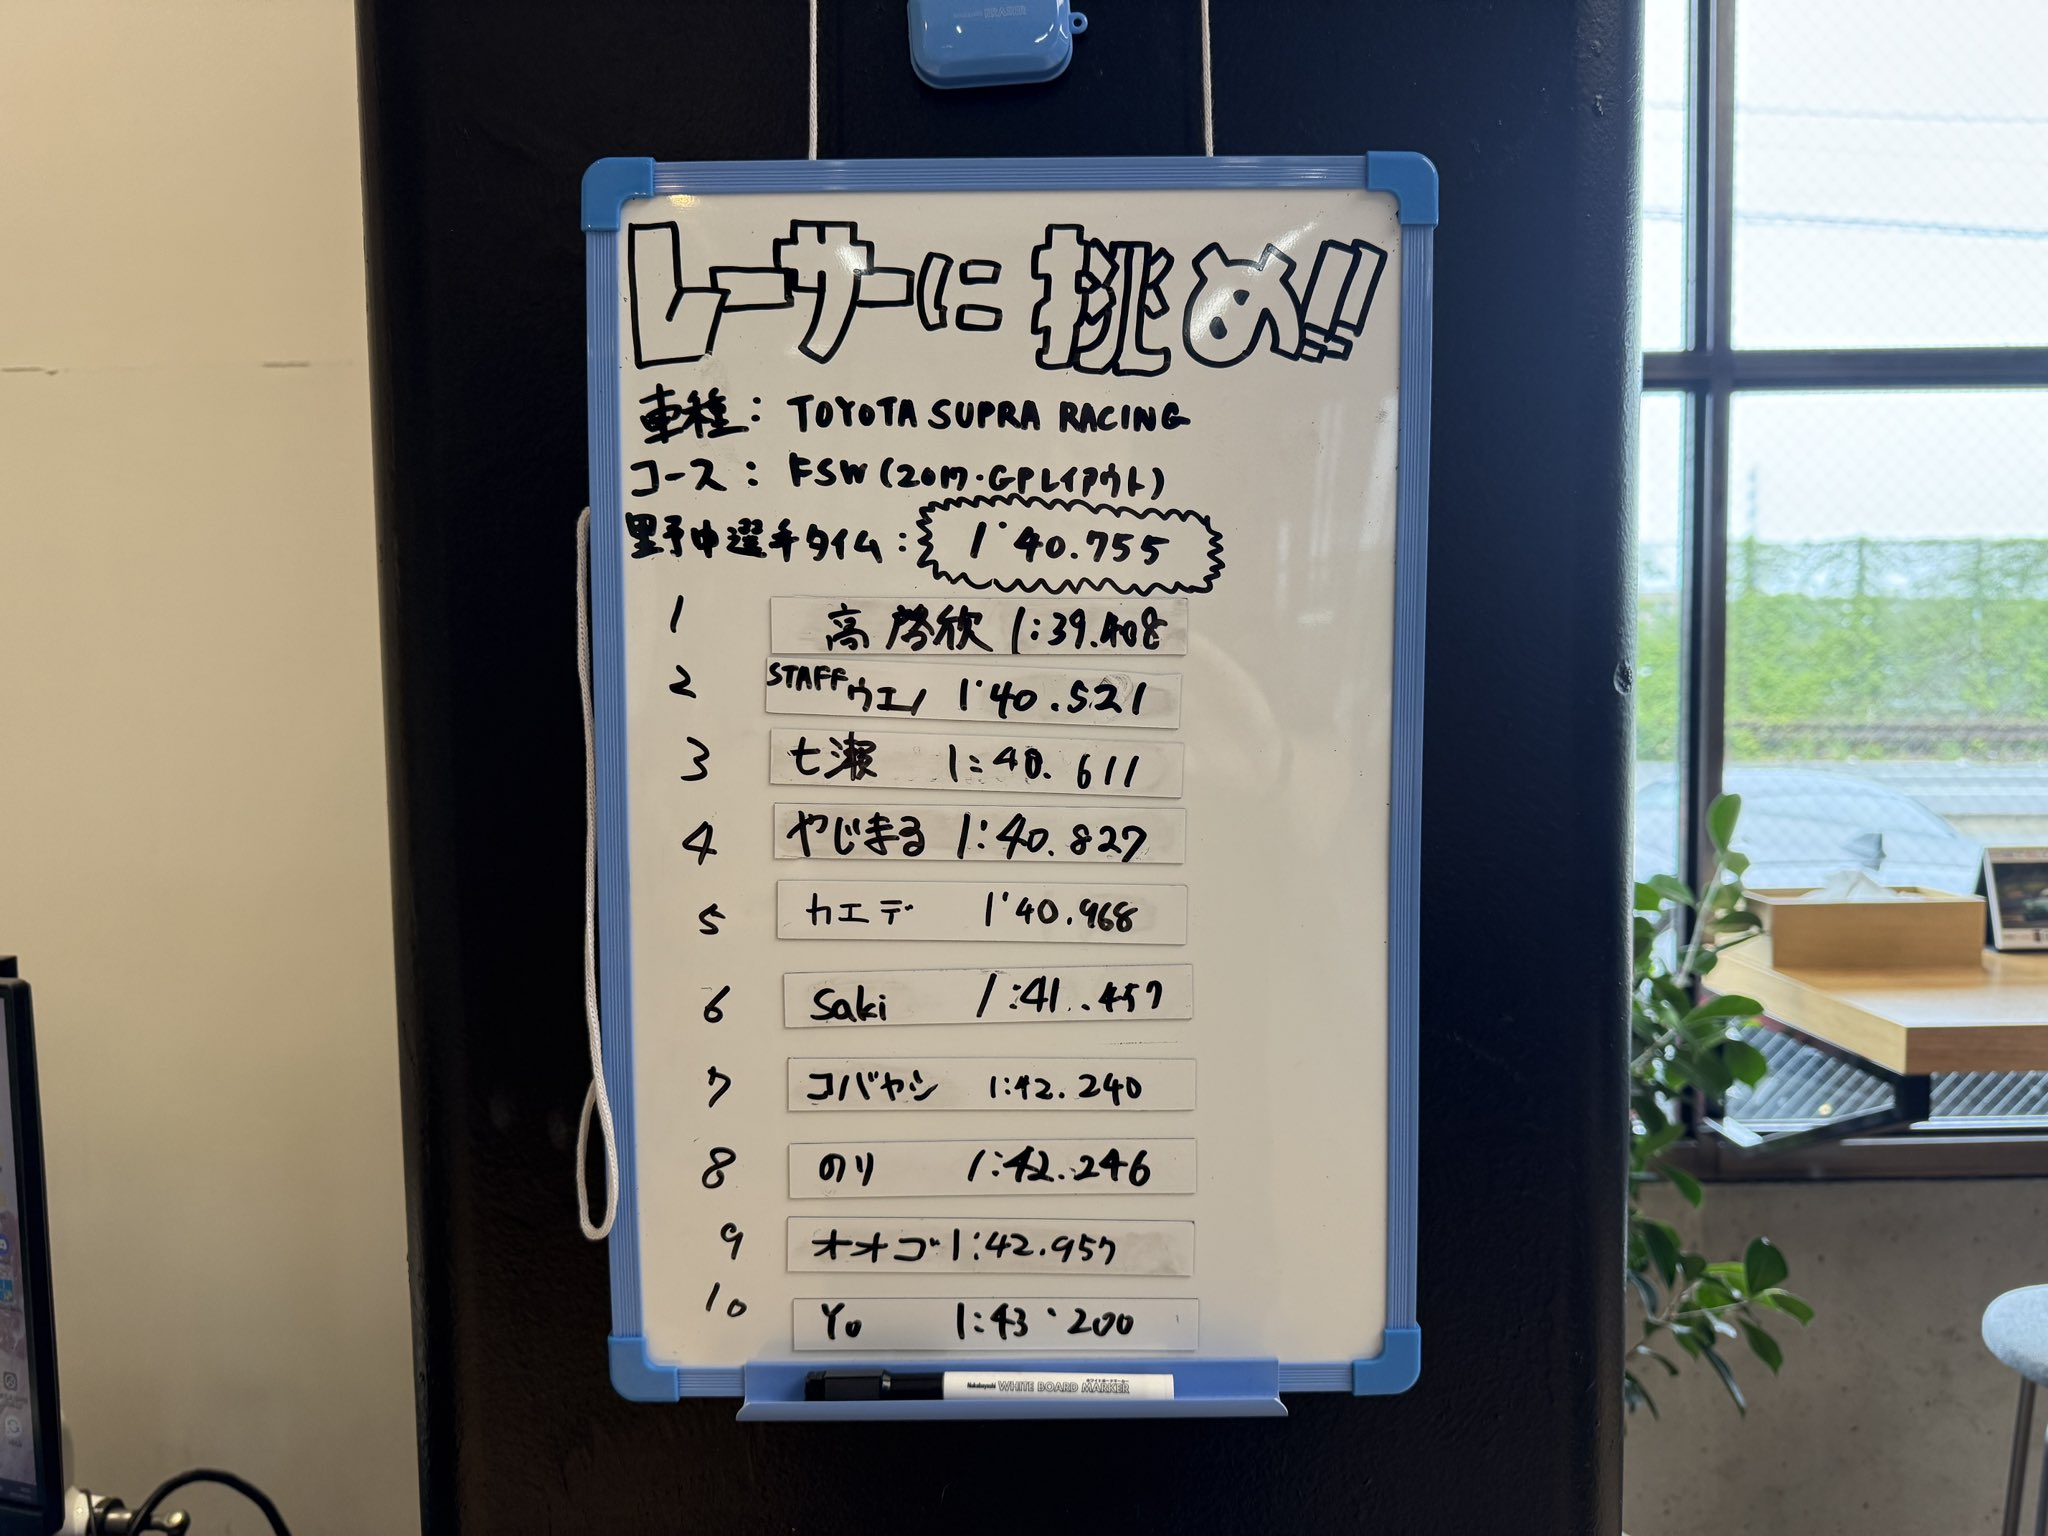 レーサーに挑め!!
車種：TOYOTA SUPRA RACING
コース：FSW(2017・GPレイアウト)
野中選手タイム：1'40.755
1 高 啓欣 1:39.408
2 STAFFウエノ 1'40.521
3 七瀬 1:40.611
4 やじまる 1:40.827
5 カエデ 1'40.968
6 Saki 1:41.457
7 コバヤシ 1:42.240
8 のり 1:42.246
9 オオゴ 1:42.957
10 Yo 1:43.200
Nakabayashi WHITE BOARD MARKER